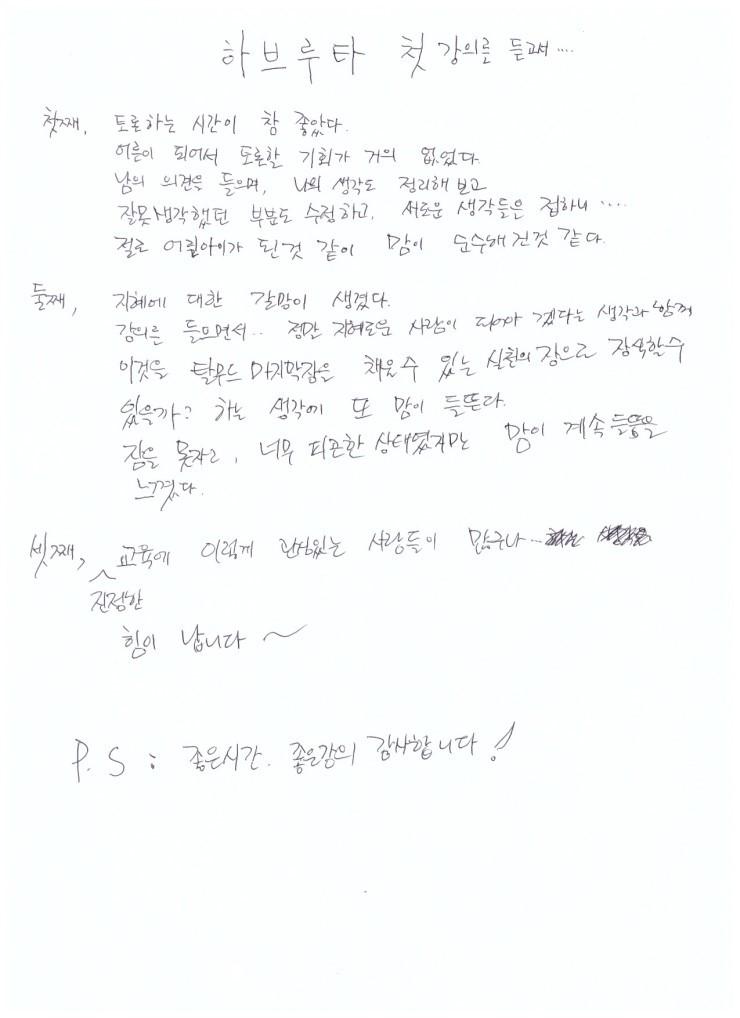 하브루타 첫 강의를 듣고서....
첫째, 토론하는 시간이 참 좋았다.
어른이 되어서 토론할 기회가 거의 없었다.
남의 의견을 들으며, 나의 생각도 정리해 보고
잘못생각했던 부분도 수정하고, 새로운 생각들은 접하니 ....
절로 어릴아이가 된것 같이 맘이 순수해 진것 같다.
둘째, 지혜에 대한 갈망이 생겼다.
강의를 들으면서.. 정말 지혜로운 사람이 되어야 겠다는 생각과 함께
이것을 탈무드 마지막장을 채울수 있는 실천의 장으로 장식할수
있을까? 하는 생각에 또 맘이 들뜬다.
잠을 못자고, 너무 피곤한 상태였지만 맘이 계속 들뜸을
느꼈다.
셋째, 교육에 이렇게 관심있는 사람들이 많구나...
진정한
힘이 납니다 ~
P.S : 좋은시간. 좋은강의 감사합니다!